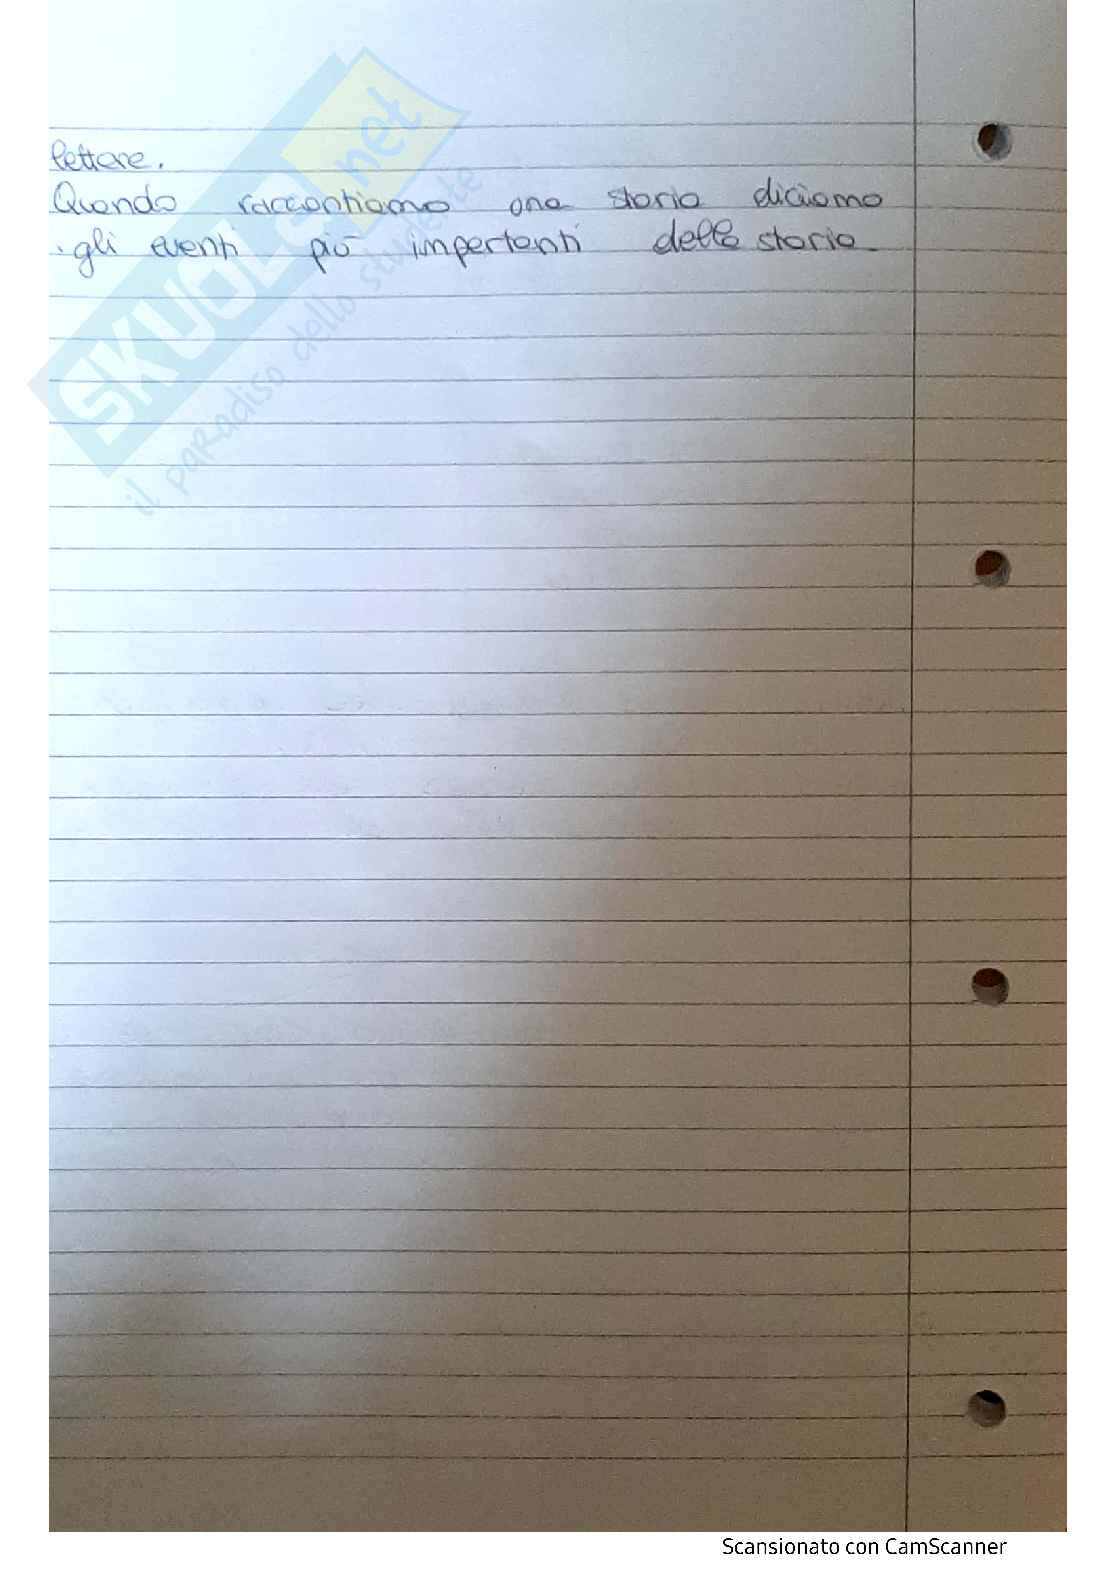 lettere.
Quando raccontiamo una storia diciamo
gli eventi più importanti della storia.
SKUOLA.net
il paradiso dello studente
Scansionato con CamScanner